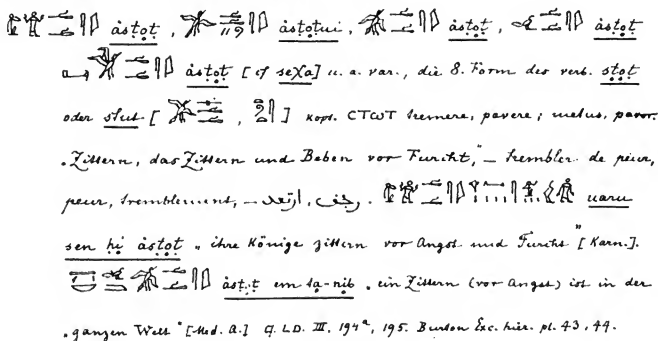 ȧstoṭ, ȧstotui, ȧstoṭ, ȧstoṭ
ȧstoṭ [cf seχa] u. a. var., die 8. Form des verb. stoṭ
oder stut [ , ] kopt. ⲤⲦⲰⲦ tremere, pavere; metus, pavor.
„Zittern, das Zittern und Beben vor Furcht," – trembler de peur,
peur, tremblement, – رجف, ارتعد. uaru
sen hi ȧstoṭ „ihre Könige zittern vor Angst und Furcht" [Karn.].
ȧsṭ.t em ta-nib „ein Zittern (vor Angst) ist in der
„ganzen Welt" [Med. A.] LD. III. 194ᵃ, 195. Burton Exc. hier. pl. 43, 44.